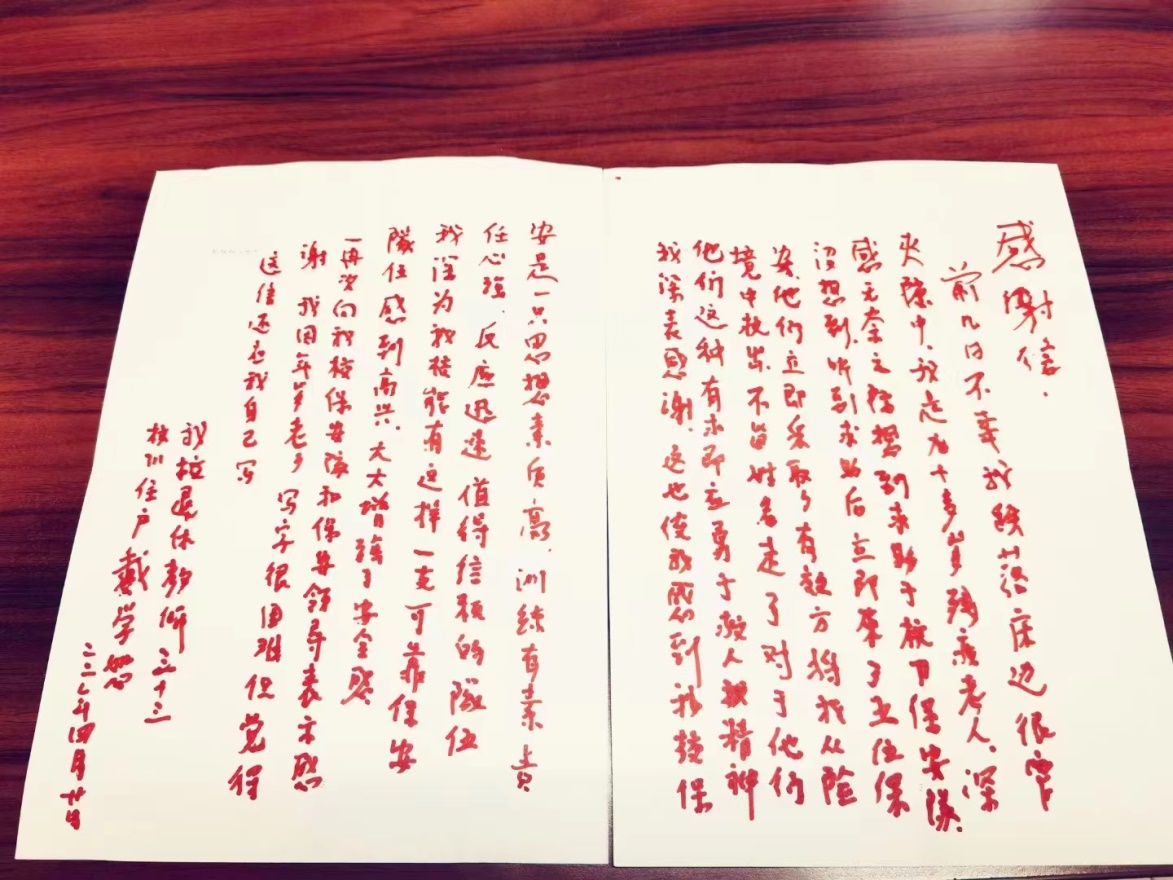 感谢信.
前几日不幸我跌落床边很窄
火隙中.我是九十多岁残疾老人.深
感无奈之际想到求助于校卫保安队.
没想到.听到求助后立即来了五位保
安.他们立即采取了有效方将我从险
境中救出.不留姓名走了对于他们
他们这种有求即应勇于救人精神
我深表恩谢.这也使我感到我校保
安是一只思想素质高.训练有素责
任心强.反应迅速值得信赖的队伍
我深为我校能有这样一支可靠保安
队伍感到高兴.大大增强了安全感
一再次向我校保安队和保安领导表示感
谢 我因年岁老了写字很困难但觉得
这信还应我自己写
我校退休教师
住户戴学
年四月廿日